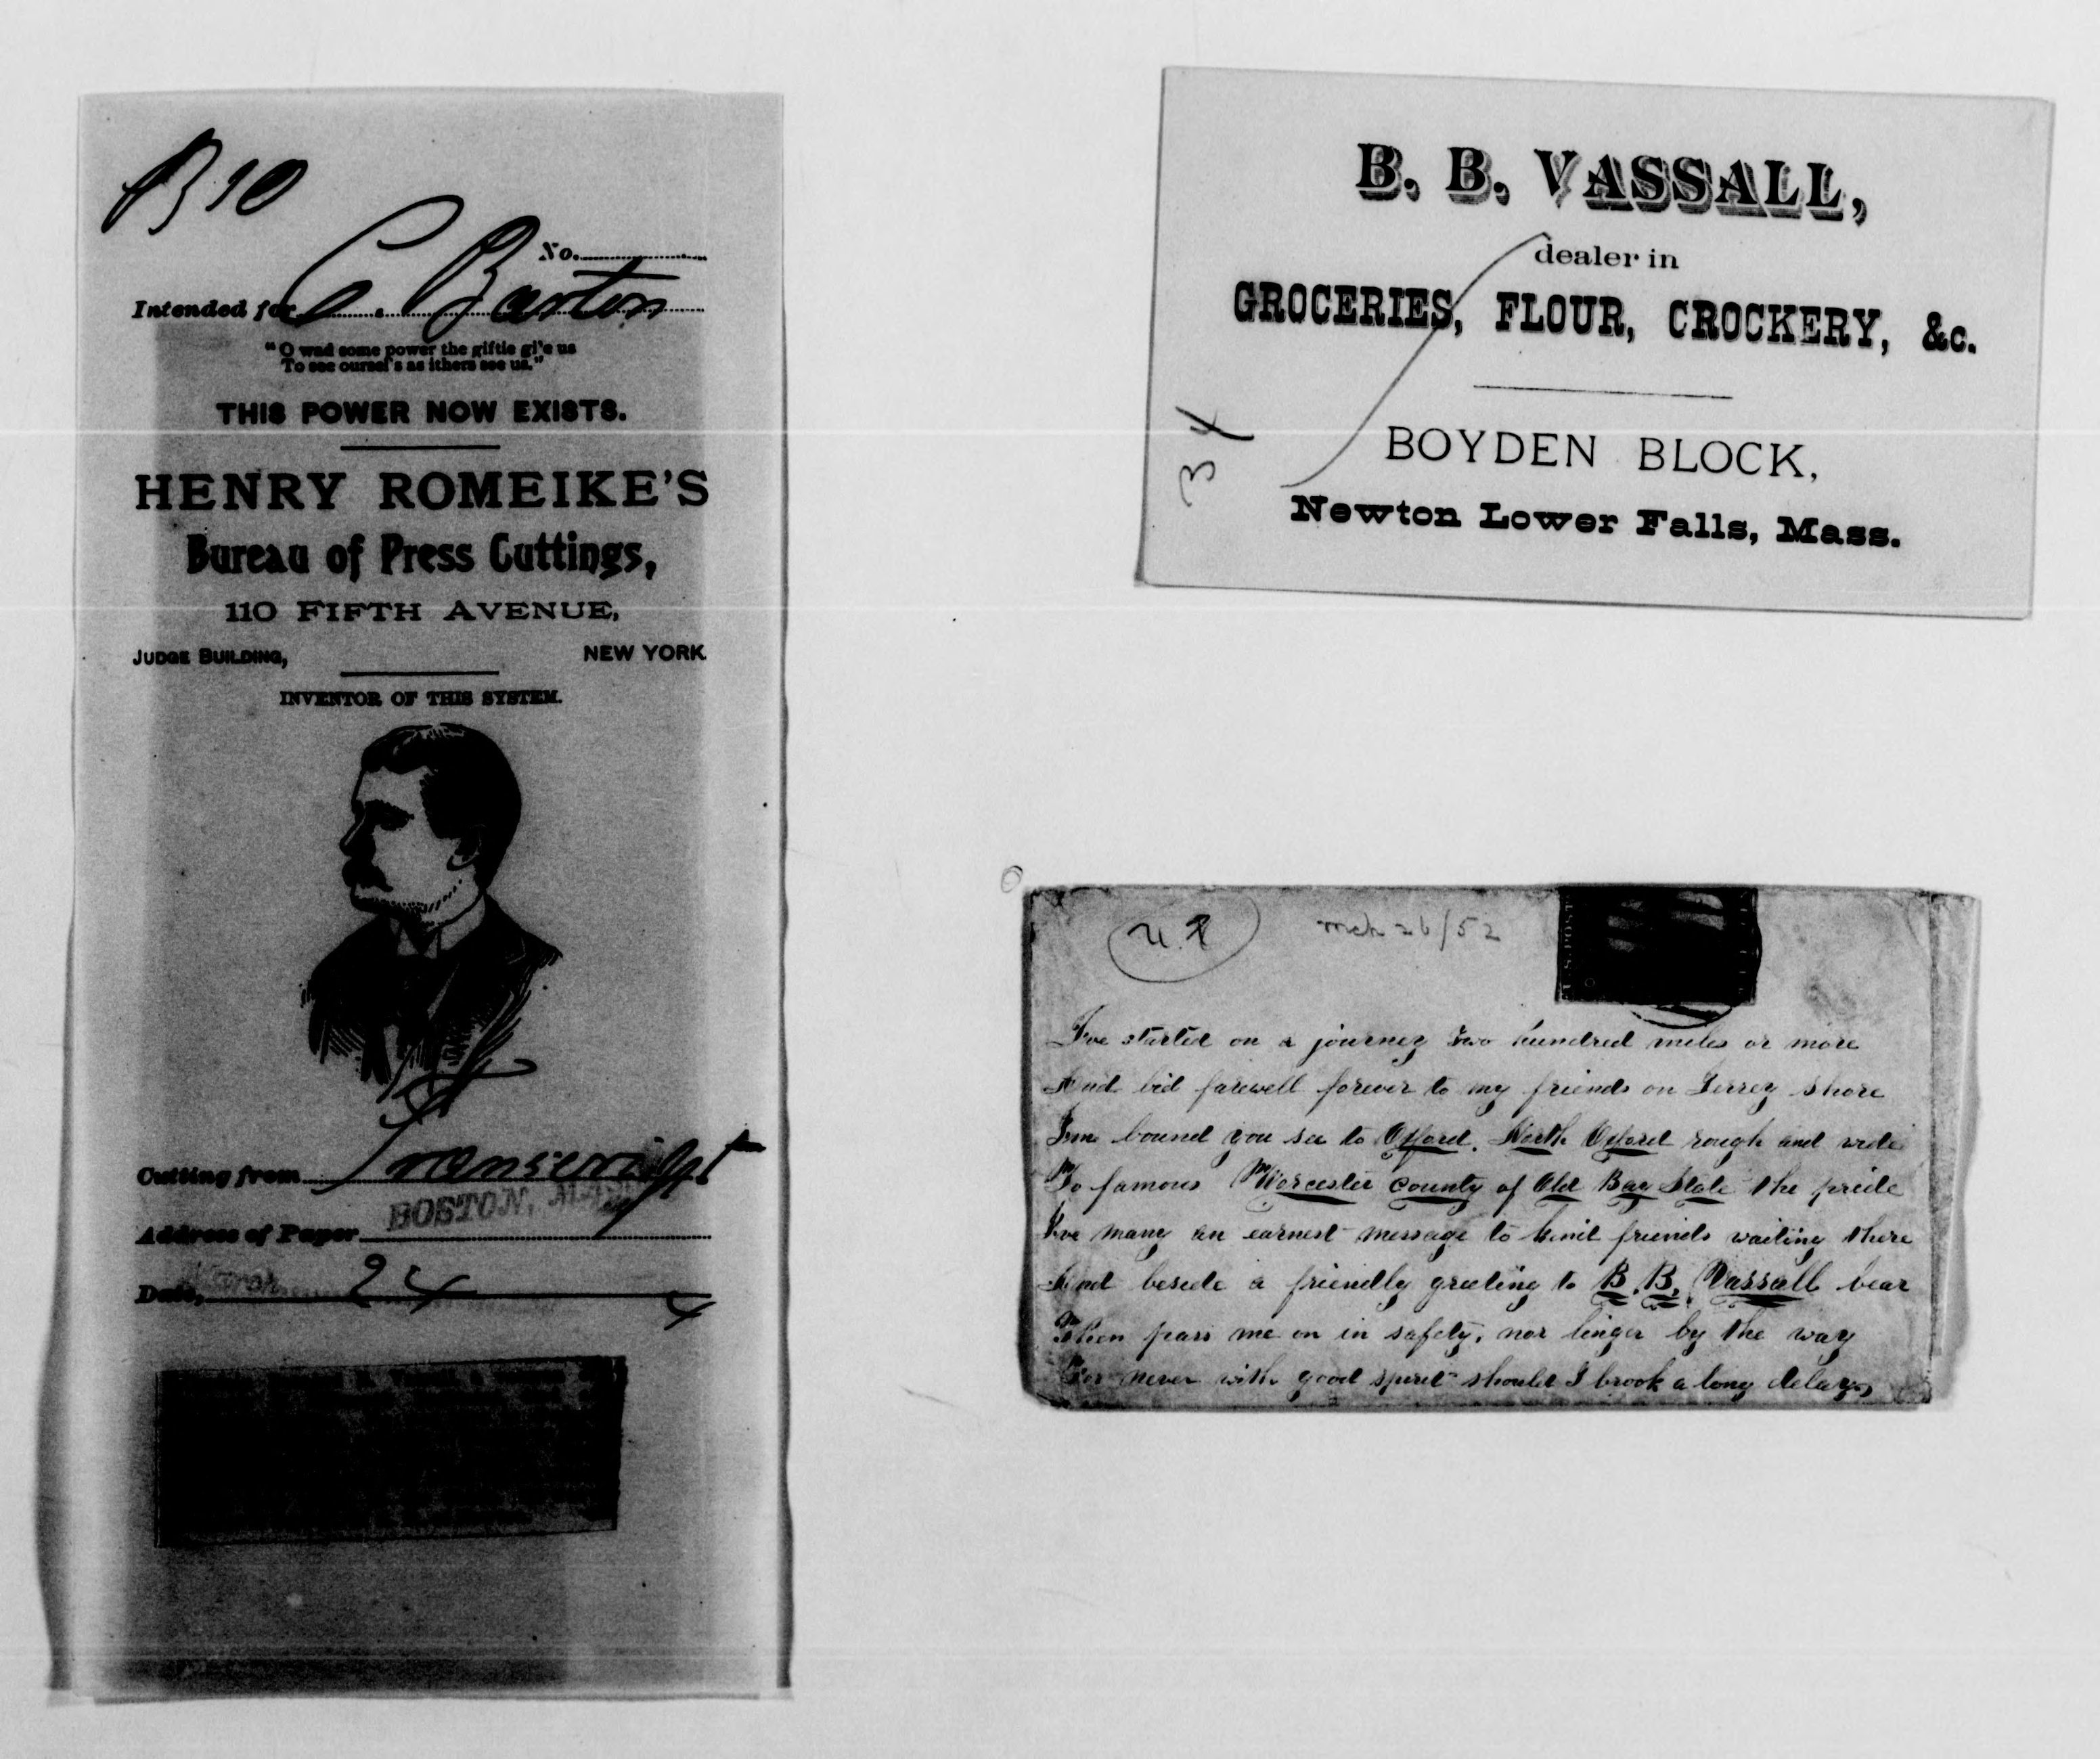 B 10
No.
Intended for C. Barton
"O wad some power the giftie gi'e us
To see oursel's as ithers see us."
THIS POWER NOW EXISTS.
HENRY ROMEIKE'S
Bureau of Press Cuttings,
110 FIFTH AVENUE,
JUDGE BUILDING, NEW YORK
INVENTOR OF THIS SYSTEM.
Cutting from Transcript
Address of Paper BOSTON, MASS
Date, 24 4
B. B. VASSALL,
dealer in
GROCERIES, FLOUR, CROCKERY, &c.
BOYDEN BLOCK,
Newton Lower Falls, Mass.
34
mch 26/52
I've started on a journey two hundred miles or more
And bid farewell forever to my friends on Jersey shore
I'm bound you see to Oxford, North Oxford rough and wide
To famous Worcester County of Old Bay State the pride
I've many an earnest message to kind friends waiting there
And beside a friendly greeting to B. B. Vassall bear
Then pass me on in safety, nor linger by the way
For never with good spirit should I brook a long delay